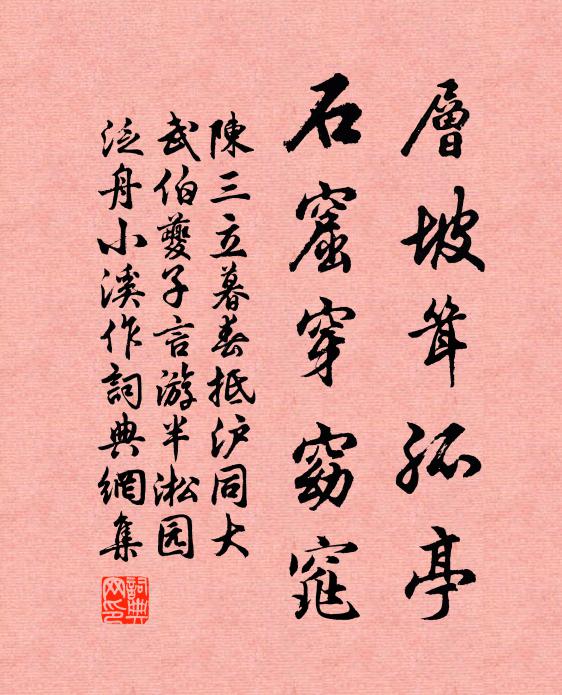 層坡茸孤亭
石窟穿窈窕
陳三立暮春抵沪同大
武伯夔子言游半淞园
泛舟小溪作詞典網集
詞典网印